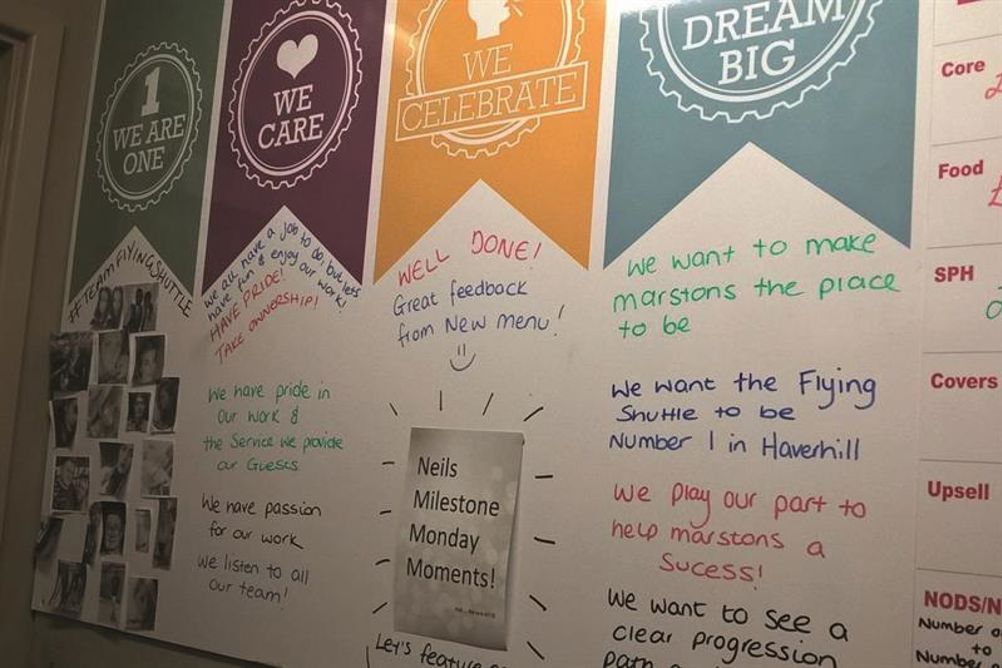 1
WE ARE
ONE
#TEAMFLYINGSHUTTLE
WE
CARE
we all have a job to do, but lets
have fun & enjoy our work!
HAVE PRIDE!
TAKE OWNERSHIP!
We have pride in
our work &
the Service we provide
our Guests
We have passion
for our work
We listen to all
Our team!
WE
CELEBRATE
WELL DONE!
Great feedback
from New menu!
Neils
Milestone
Monday
Moments!
Let's feature
DREAM
BIG
We want to make
marstons the place
to be
We want the Flying
Shuttle to be
Number 1 in Haverhill
We play our part to
help marstons a
Sucess!
We want to see a
clear progression
path
Core
Food
SPH
Covers
Upsell
NODS/N
Number o
to
Number